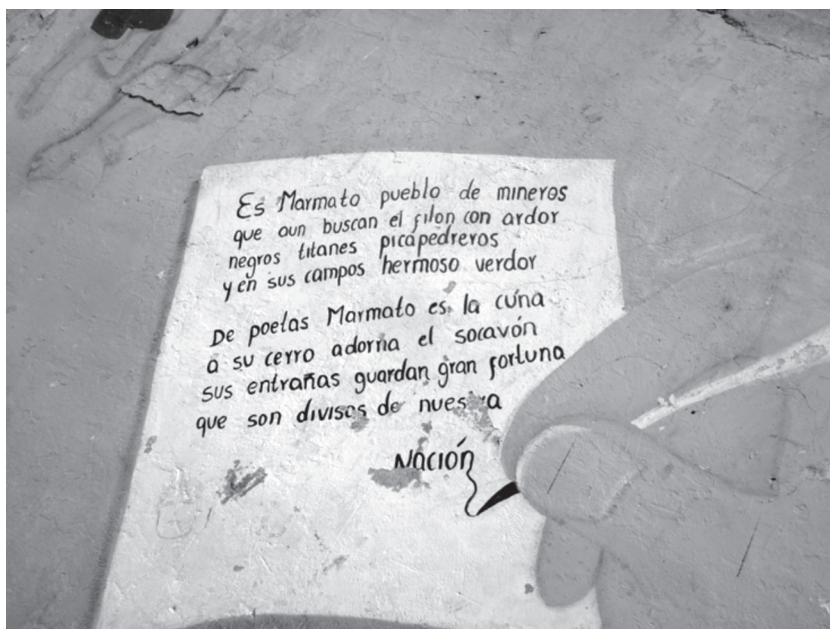 Es Marmato pueblo de mineros
que aun buscan el filon con ardor
negros titanes picapedreros
y en sus campos hermoso verdor
De poetas Marmato es la cuna
a su cerro adorna el socavón
sus entrañas guardan gran fortuna
que son divisas de nuestra
Nación